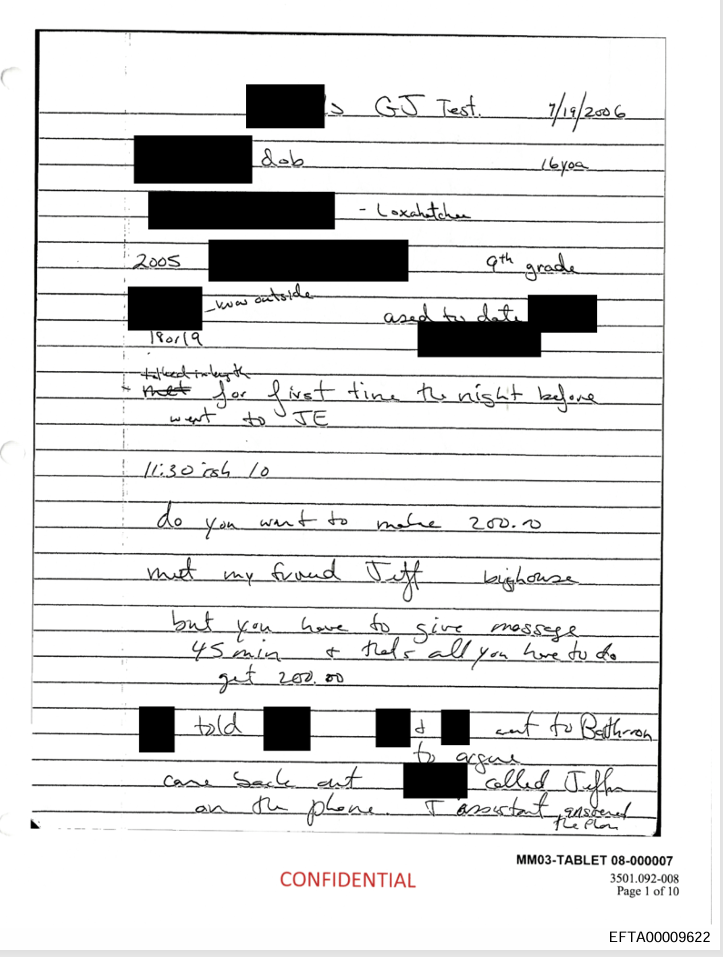 's GJ Test. 7/19/2006
dob 16yoa
- Loxahatchee
2005 9th grade
- was outside used to date
18 or 19
talked in length
met for first time the night before
went to JE
11:30 ish 10
do you want to make 200.00
met my friend Jeff big house
but you have to give message
45 min & that's all you have to do
get 200.00
told & went to Bathroom
to argue
came back out called Jeffrey
on the phone. assistant answered
the phone
MM03-TABLET 08-000007
3501.092-008
Page 1 of 10
CONFIDENTIAL
EFTA00009622